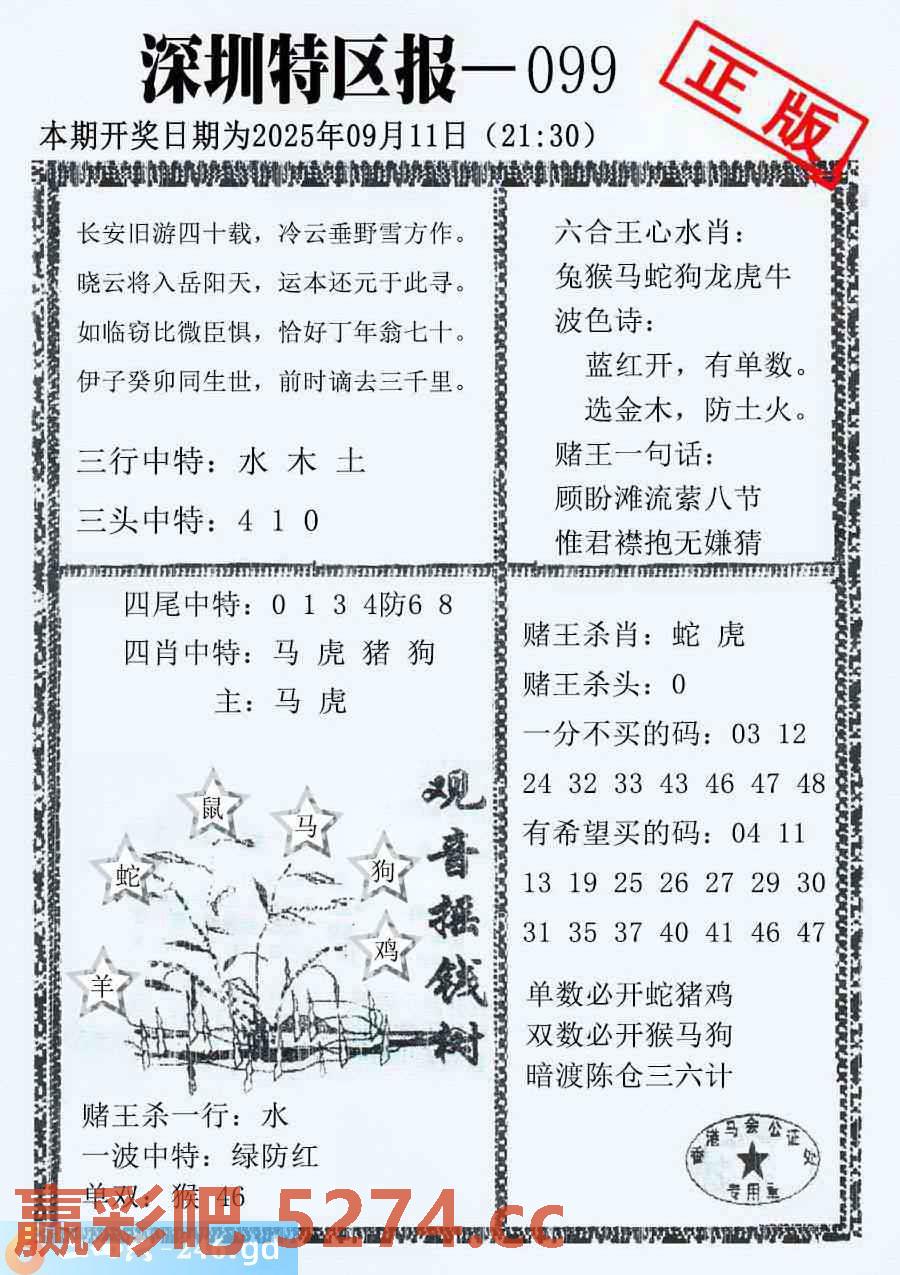 深圳特区报—099
正版
本期开奖日期为2025年09月11日（21:30）
长安旧游四十载，冷云垂野雪方作。
晓云将入岳阳天，运本还元于此寻。
如临窃比微臣惧，恰好丁年翁七十。
伊子癸卯同生世，前时谪去三千里。
三行中特：水 木 土
三头中特：4 1 0
六合王心水肖：
兔猴马蛇狗龙虎牛
波色诗：
蓝红开，有单数。
选金木，防土火。
赌王一句话：
顾盼滩流萦八节
惟君襟抱无嫌猜
四尾中特：0 1 3 4防6 8
四肖中特：马 虎 猪 狗
主：马 虎
鼠
马
蛇
狗
鸡
羊
观音摇钱树
赌王杀一行：水
一波中特：绿防红
单双：猴 46
赌王杀肖：蛇 虎
赌王杀头：0
一分不买的码：03 12
24 32 33 43 46 47 48
有希望买的码：04 11
13 19 25 26 27 29 30
31 35 37 40 41 46 47
单数必开蛇猪鸡
双数必开猴马狗
暗渡陈仓三六计
香港马会公证处
专用章
赢彩吧 5274.cc